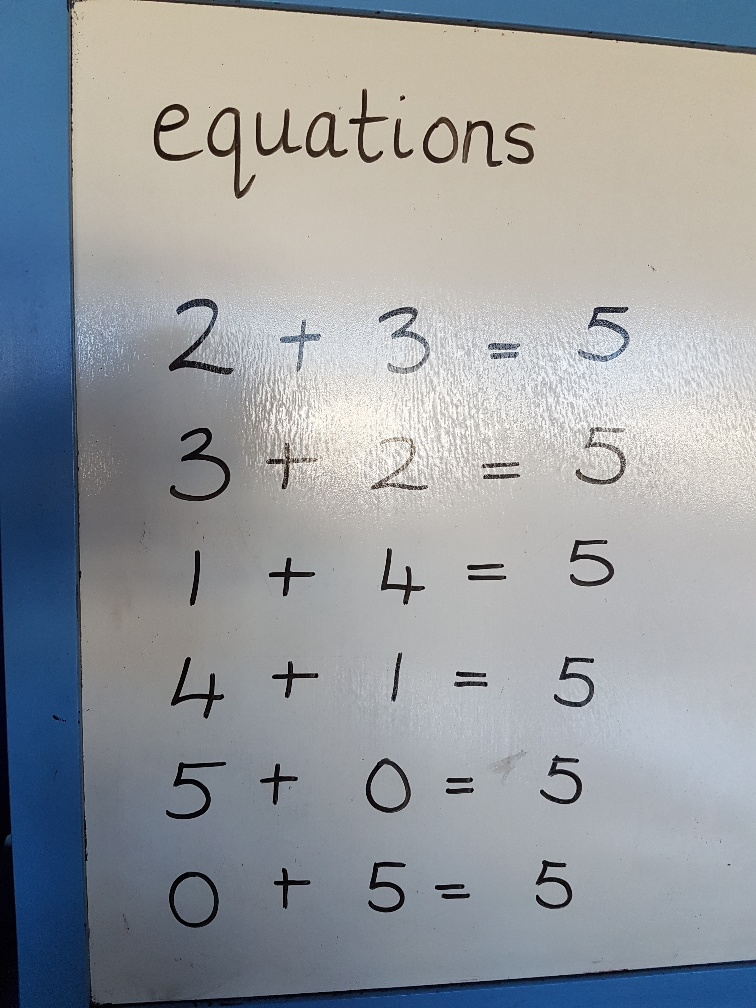 equations
2 + 3 = 5
3 + 2 = 5
1 + 4 = 5
4 + 1 = 5
5 + 0 = 5
0 + 5 = 5